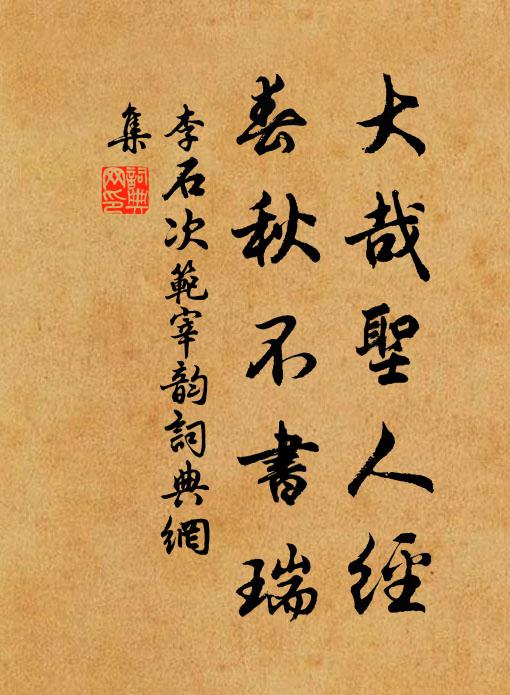 大哉聖人經
春秋不書瑞
李石次範宰韵詞典網
集
詞典網印